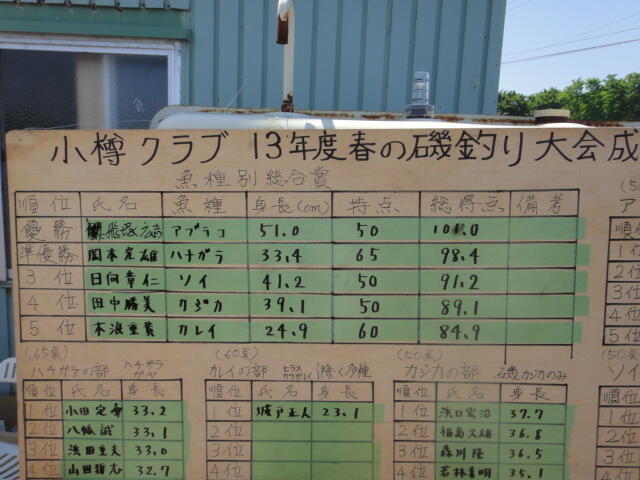 小樽クラブ 13年度春の磯釣り大会成
魚種別総合賞
順位 氏名 魚種 身長(cm) 持点 総得点 備考
優勝 アブラコ 51.0 50 101.0
準優勝 関本定雄 ハチガラ 33,4 65 98.4
3位 日向章仁 ソイ 41.2 50 91.2
4位 田中勝美 カジカ 39.1 50 89.1
5位 本浪重貴 カレイ 24.9 60 84.9
(65点) (60点) (50点)
ハチガラの部 ハチガラ ガヤ カレイの部 除く多種 カジカの部 磯カジカのみ
順位 氏名 身長 順位 氏名 身長 順位 氏名 身長
1位 小田定幸 33.2 1位 城戸正人 23.1 1位 浜口宏治 37.7
2位 八幡誠 33.1 2位 2位 福島久雄 36.8
3位 浜田重夫 33.0 3位 3位 森川隆 36.5
4位 山田哲志 32.7 4位 4位 若林喜明 35.1
(5
ア
順位
1位
2位
3位
4位
5位
(50点
ソイ
順位
1位
2位
3位
4位